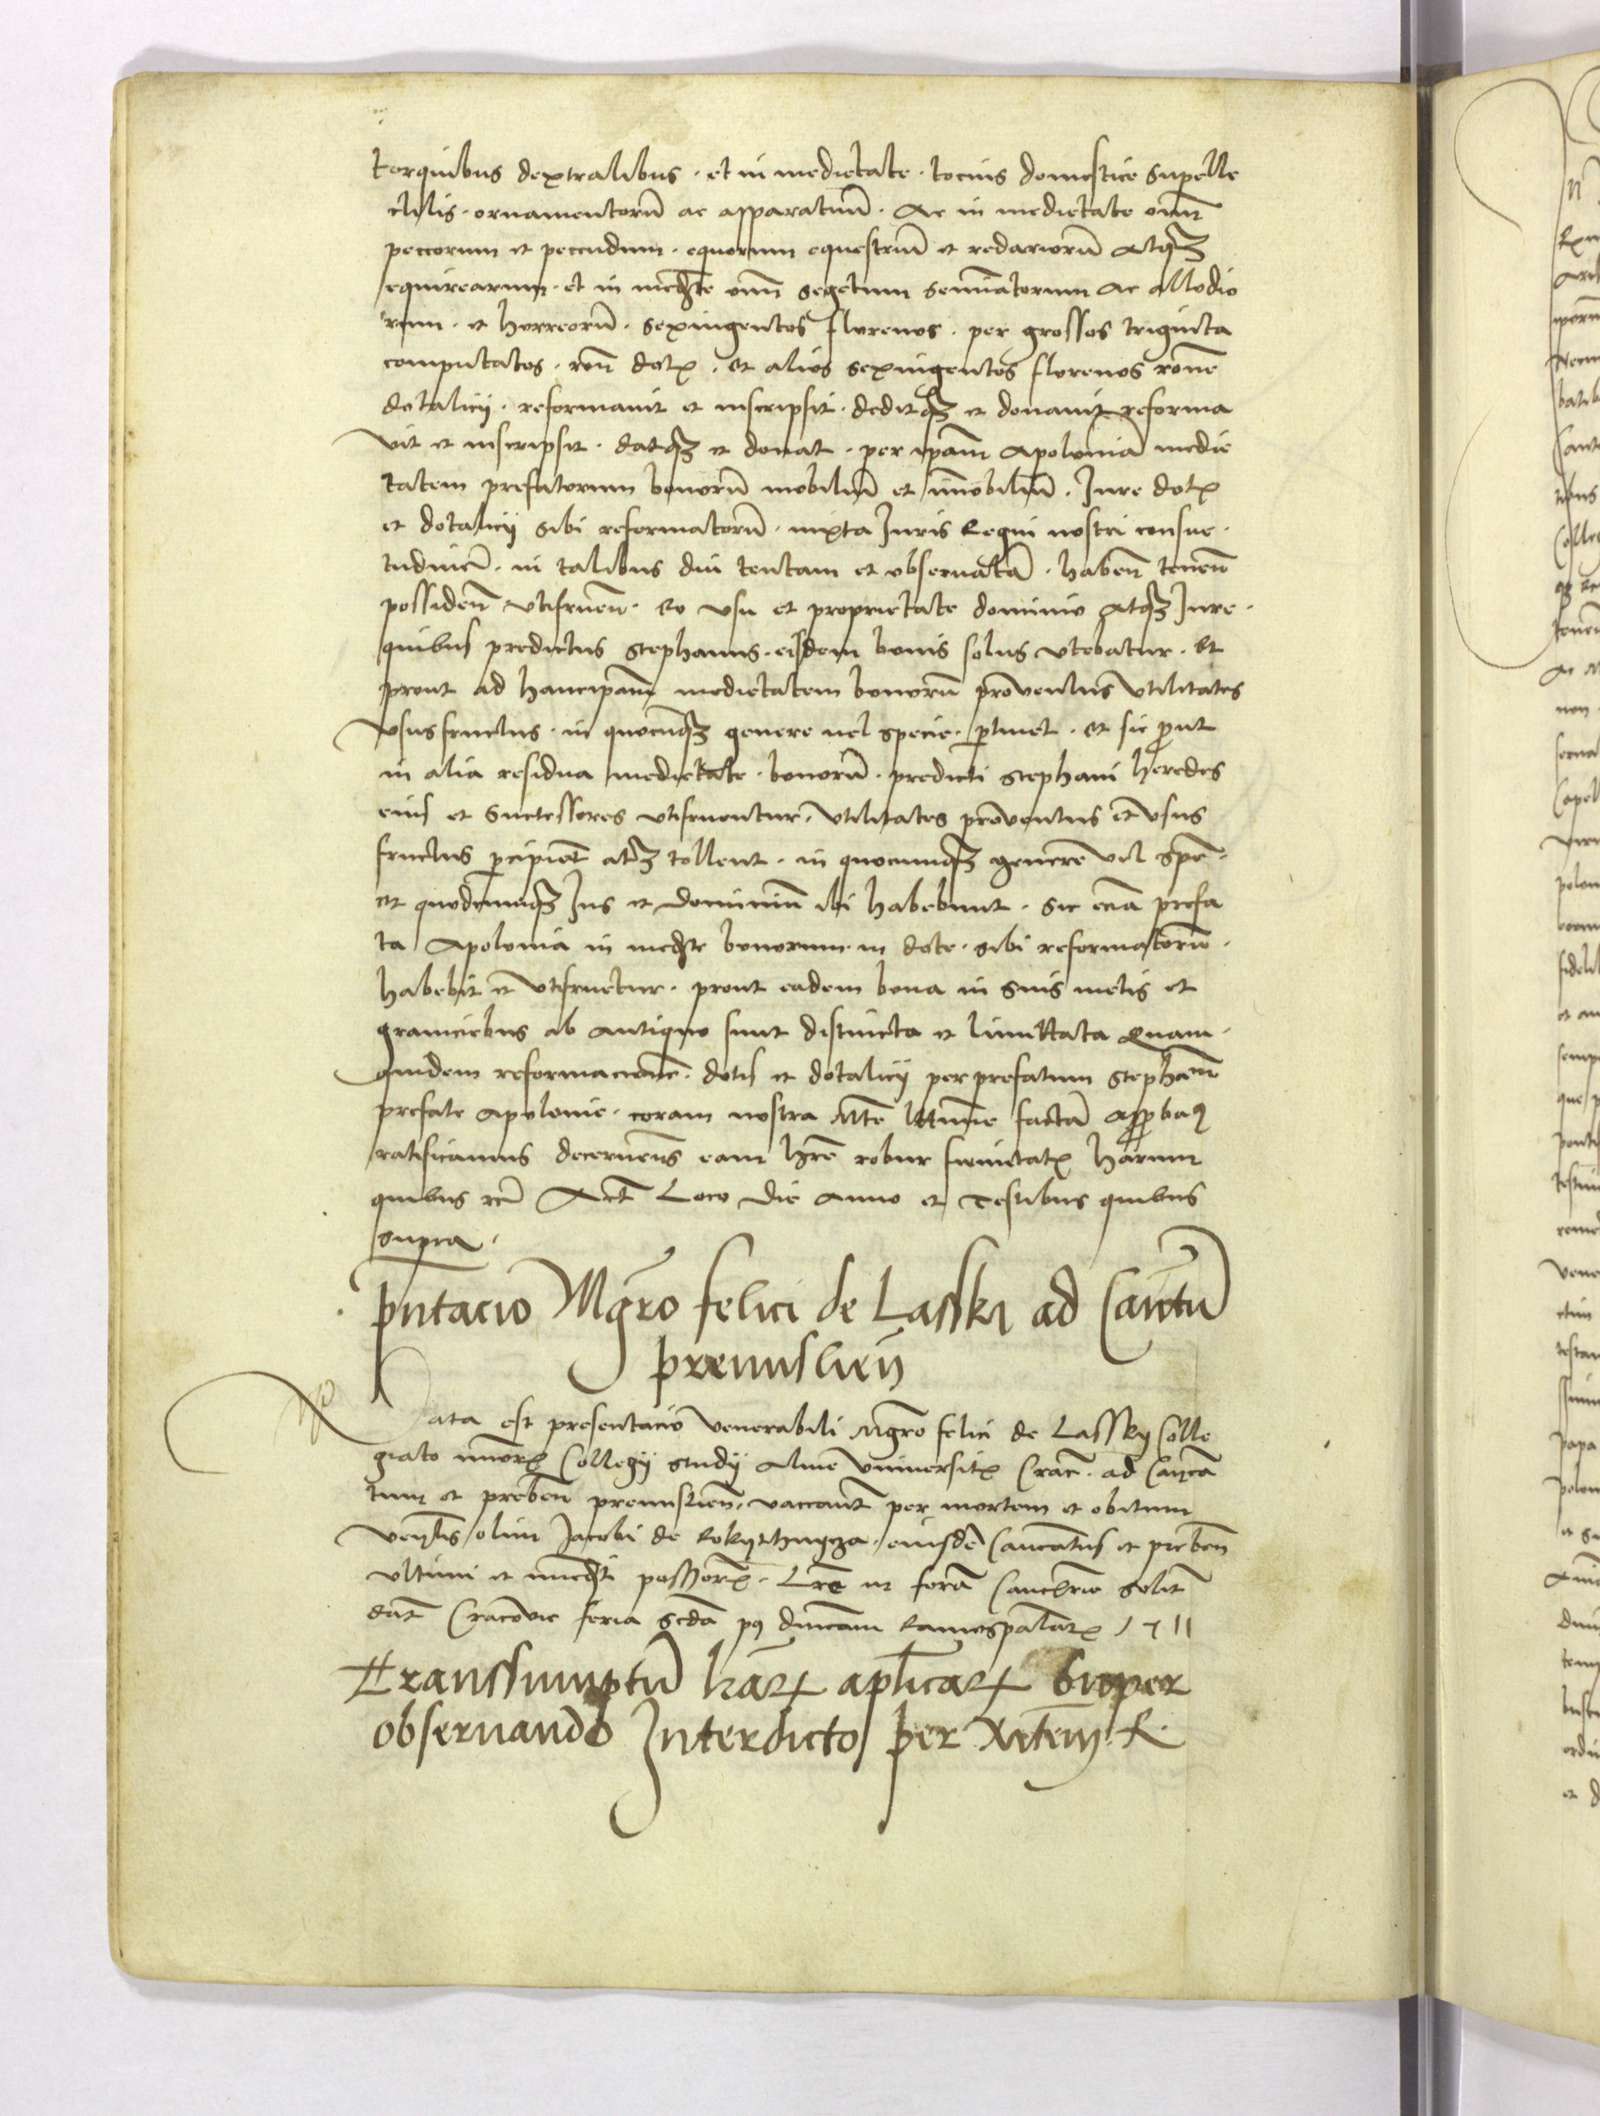 torquibus dextralibus · et in medietate · tocius domestice supelle
ctilis · ornamentorū ac apparatuū · Ac in medietate omīn
peccorum et peccudum · equorum equestriū et redariorū Atqȝ
equirearum · et in medᵗte omn̄ segetum seminatorum Ac allodio
rum · et horreorū · sexingentos florenos · per grossos triginta
computatos · ron̄ dotꝭ · et alios sexingentos florenos rōne
dotalicij · reformauit et inscripsit · deditqȝ et donauit reforma
vit et inscripsit · datqȝ et donat · per ip̄am Apoloniā medie
tatem prefatorum bonorū mobiliū et im̄obiliū · Jure dotꝭ
et dotalicij sibi reformatorū · iuxta Juris Regni nostri consue ·
tudinē · in talibus diu tentam et obseruatā · haben̄ tenen̄
possiden̄ vtifruen̄ · Eo vsu et proprietate dominio Atqȝ Jure ·
quibus predictus Stephanus · eisdem bonis solus vtebatur · Et
prout ad hanc ip̄am medietatem bonorū prouentus vtilitates
vsusfructus · in quocūqȝ genere uel specie · ꝑtinet · et sic ꝓut
in alia residua medietate · bonorū · predicti Stephani heredes
eius et Successores vtifruentur · vtilitates prouentus et vsus
fructus ꝑcipiēt atqȝ tollent · in quocumqȝ genere vel spē ·
et quodcumqȝ Jus et Dominiū ibi habebunt · Sic eciā prefa
ta Apolonia in medᵗte bonorum · in dote · sibi reformatorū ·
habebit et vtifruetur · prout eadem bona in suis metis et
graniciebus ab antiquo sunt distincta et limittata Quam ·
quidem reformacionē · dotis et dotalicij per prefatum Stephanū
prefate Apolonie · coram nostra Mte l̄ttime factā Appbaꝯ
ratificamus decernen̄s eam hr̄e robur firmitatꝭ Harum
quibus rc̄ Act̄ Loco Die Anno et Testibus quibus
supra ·
pn̄tacio Mgr̄o felici de Lasski ad Can̄tū
premislien̄
Data est presentacio Venerabili Mgr̄o felici de Lassky Colle
giato minorꝭ Collegij studij Alme Vniuersitꝭ Crac̄ · ad Can̄ca
tum et preben̄ premislien̄ · vaccan̄t per mortem et obitum
Ven̄lis olim Jacobi de Rokythnycza · eiusdē Cancatus et preben̄
vltimi et imed̄ti posSorꝭ · Lr̄e in formā Cancellrie solit̄
dat̄ Cracouie feria sc̄da pꝯ dnīcam Ramispalmarꝭ 1511
Transsumptū lr̄arꝝ aplicarꝝ super
obseruando Interdicto per Xitem R ·